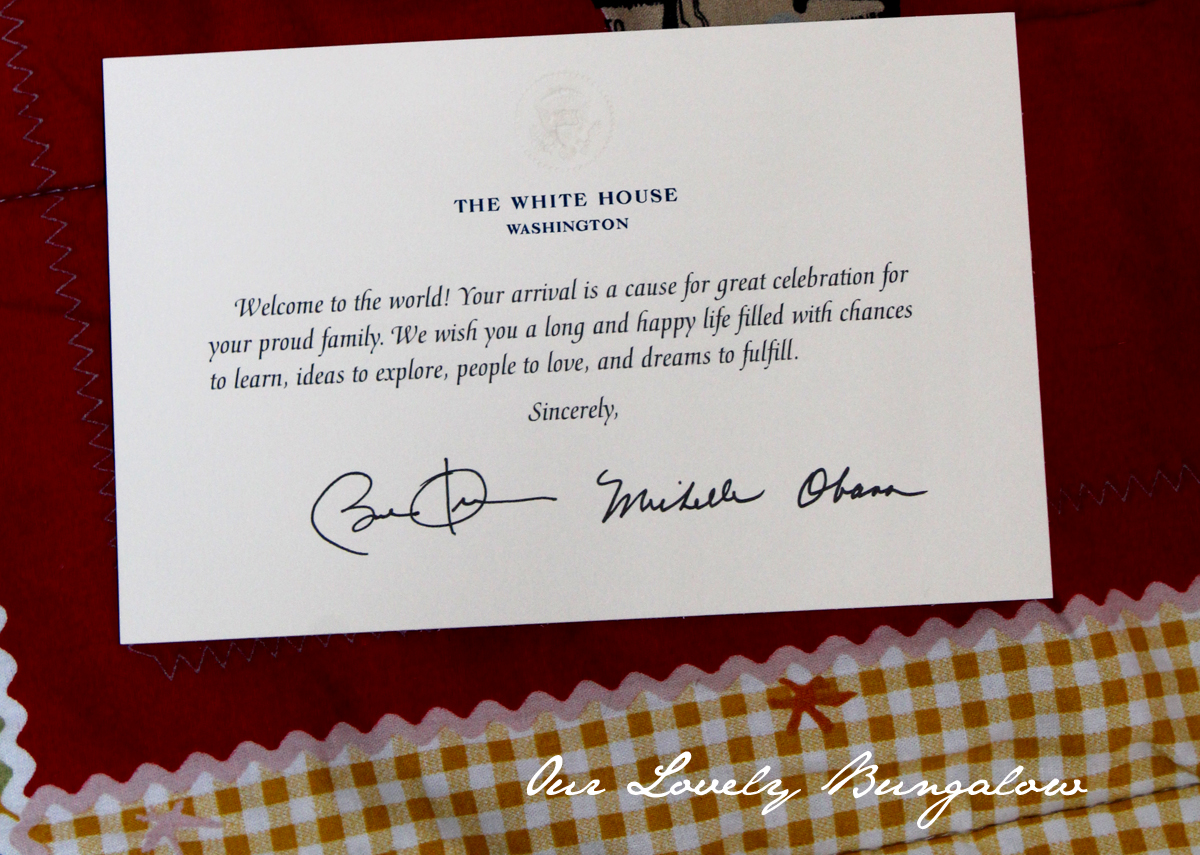 THE WHITE HOUSE
WASHINGTON
Welcome to the world! Your arrival is a cause for great celebration for
your proud family. We wish you a long and happy life filled with chances
to learn, ideas to explore, people to love, and dreams to fulfill.
Sincerely,
Michelle Obama
Our Lovely Bungalow